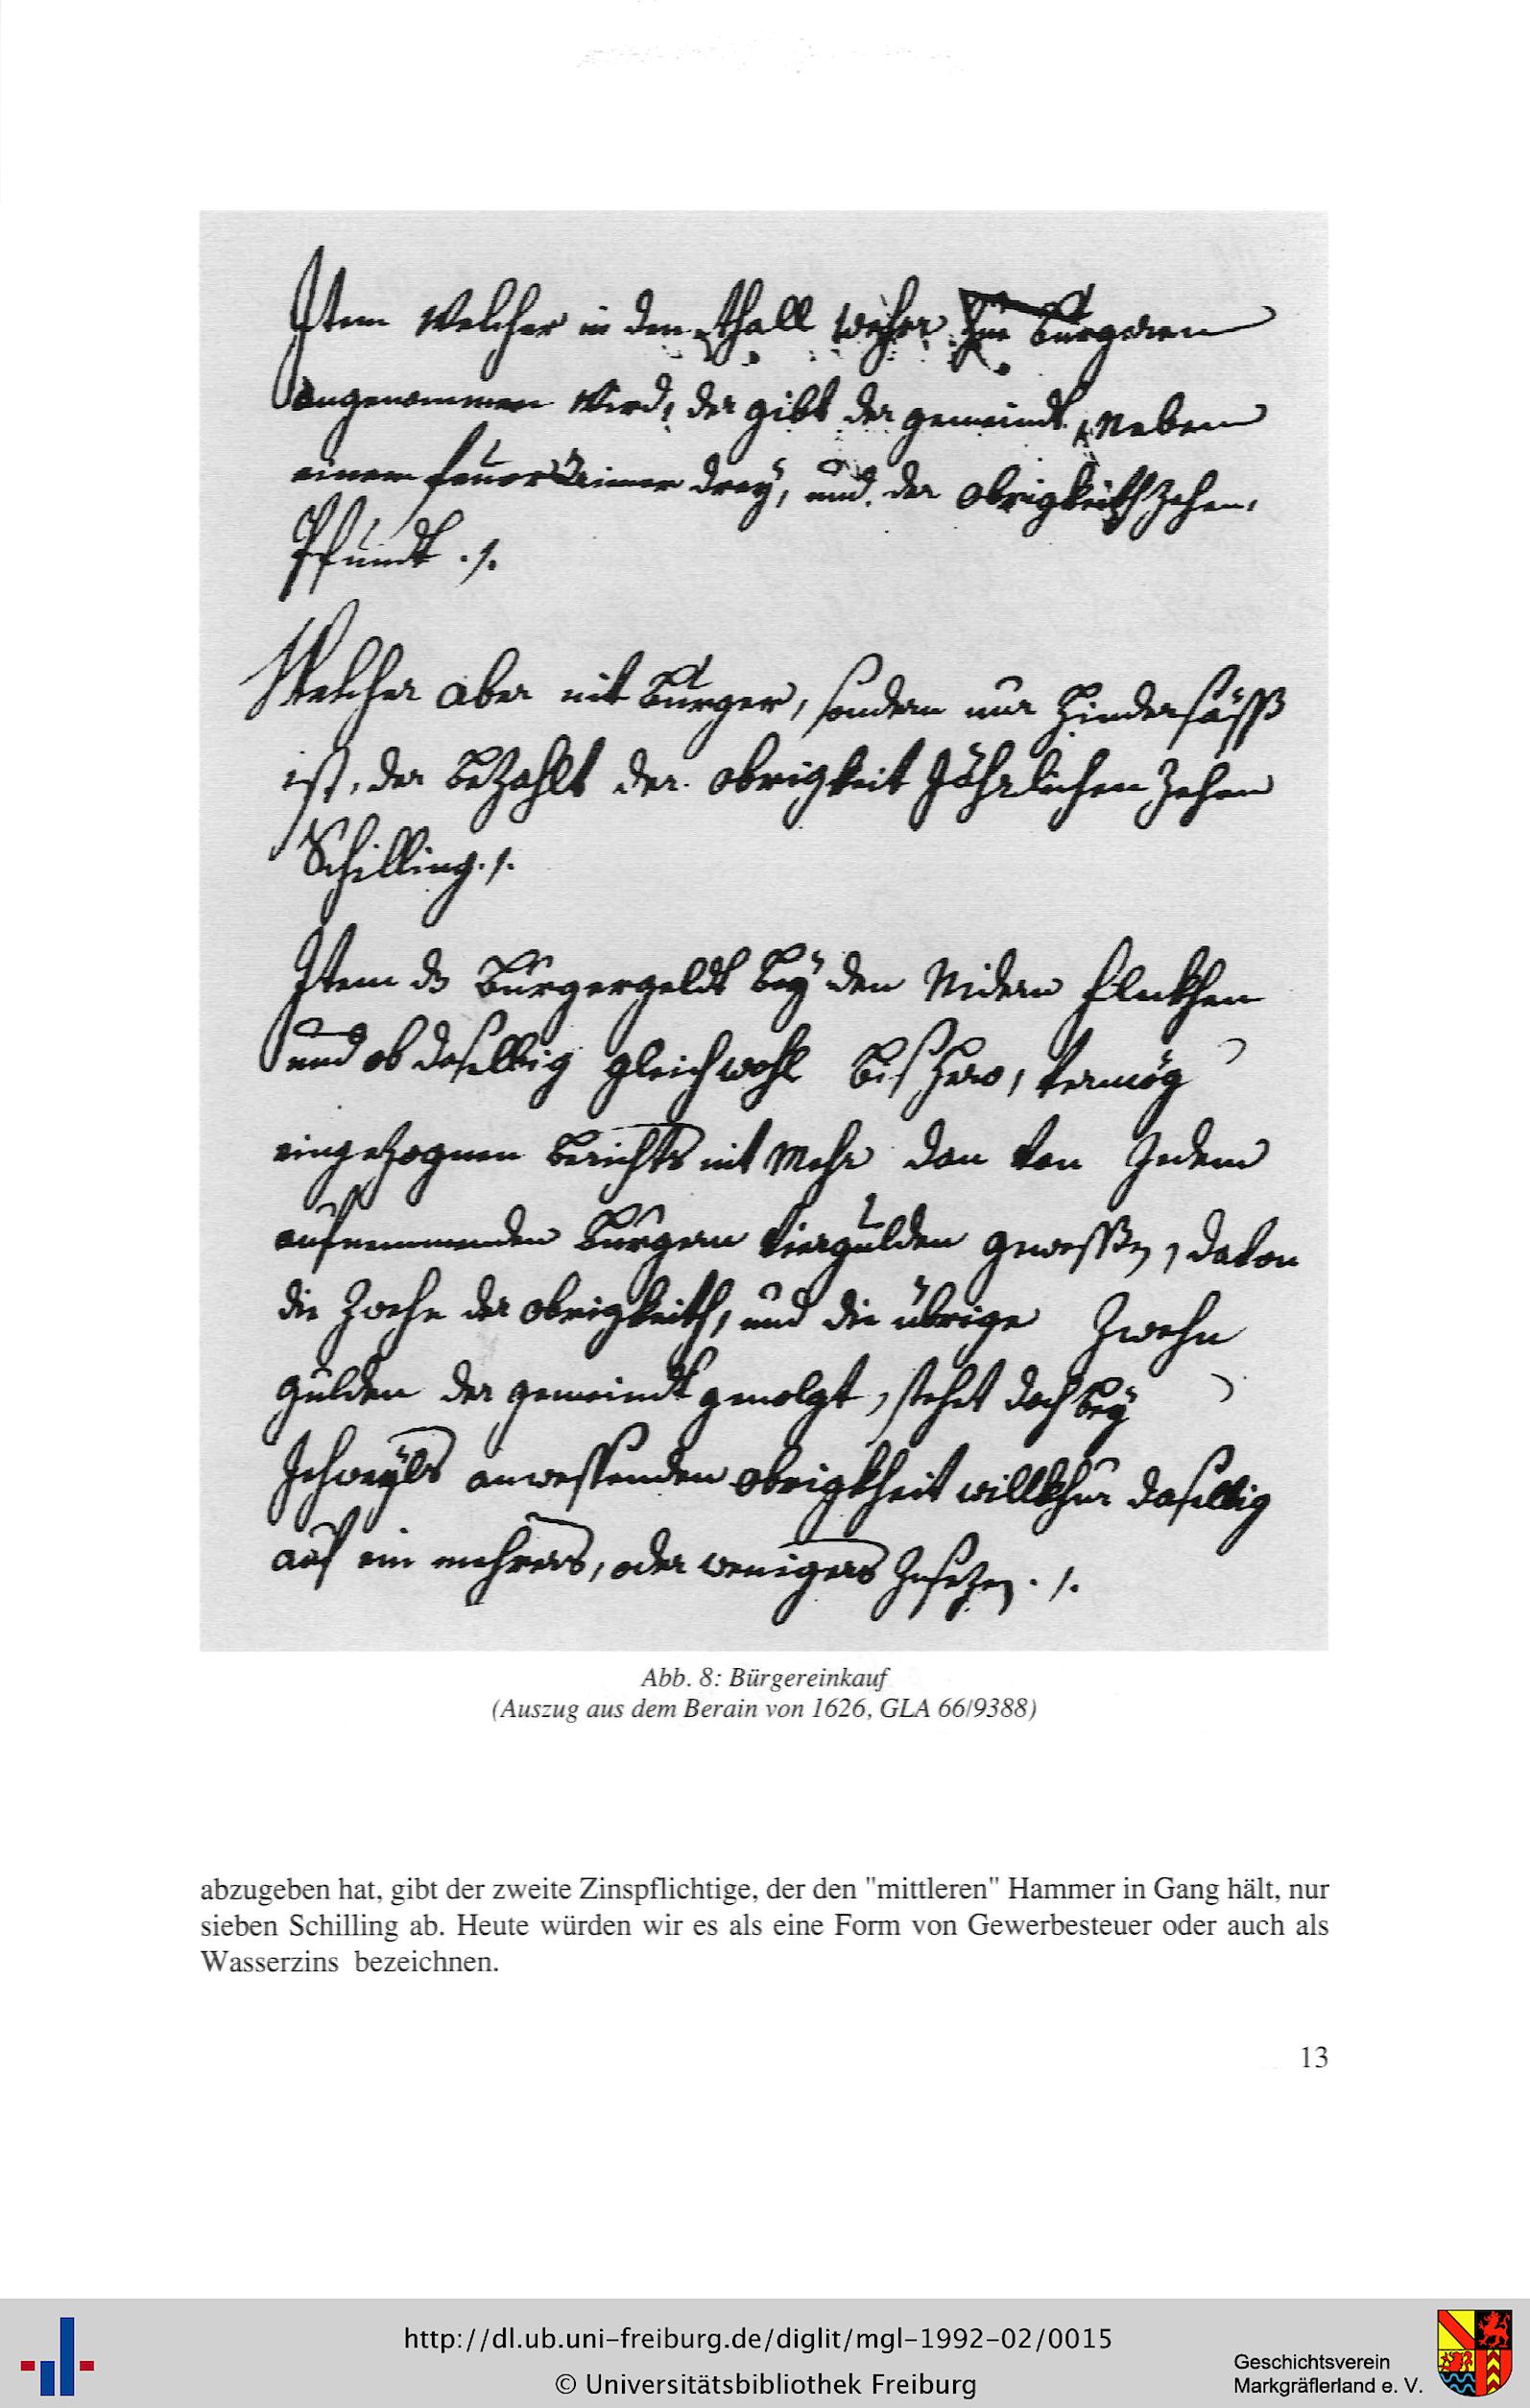 Item Welcher in den thall weher Zue Burgeren
angenommen Wird, der gibt der gemeindt, Neben
einem feuer Aimer drey, und der obrigkeith Zehen,
Pfundt ./.
Welcher aber nit Burger, sondern nur Hindersäss
ist, der Bezahlt der obrigkeit Jährlichen Zehen
Schilling ./.
Item ds Burgergeldt Bey den Nidern flekhen
und ob daselbig gleichwohl Bishero, vermög
eingezognen Berichts nit Mehr dan von Jedem
aufnemmenden Burgern viergulden gewessen, davon
die Zwehn der obrigkeith, und die übrige Zwehn
gulden der gemeindt gevolgt, steht doch bey
Jehweyls anwessenden obrigkheit willkhur daselbig
auf ein mehrers, oder wenigers Zusetzen ./.
Abb. 8: Bürgereinkauf
(Auszug aus dem Berain von 1626, GLA 66/9388)
abzugeben hat, gibt der zweite Zinspflichtige, der den "mittleren" Hammer in Gang hält, nur
sieben Schilling ab. Heute würden wir es als eine Form von Gewerbesteuer oder auch als
Wasserzins bezeichnen.
13
http://dl.ub.uni-freiburg.de/diglit/mgl-1992-02/0015
© Universitätsbibliothek Freiburg
Geschichtsverein
Markgräflerland e. V.